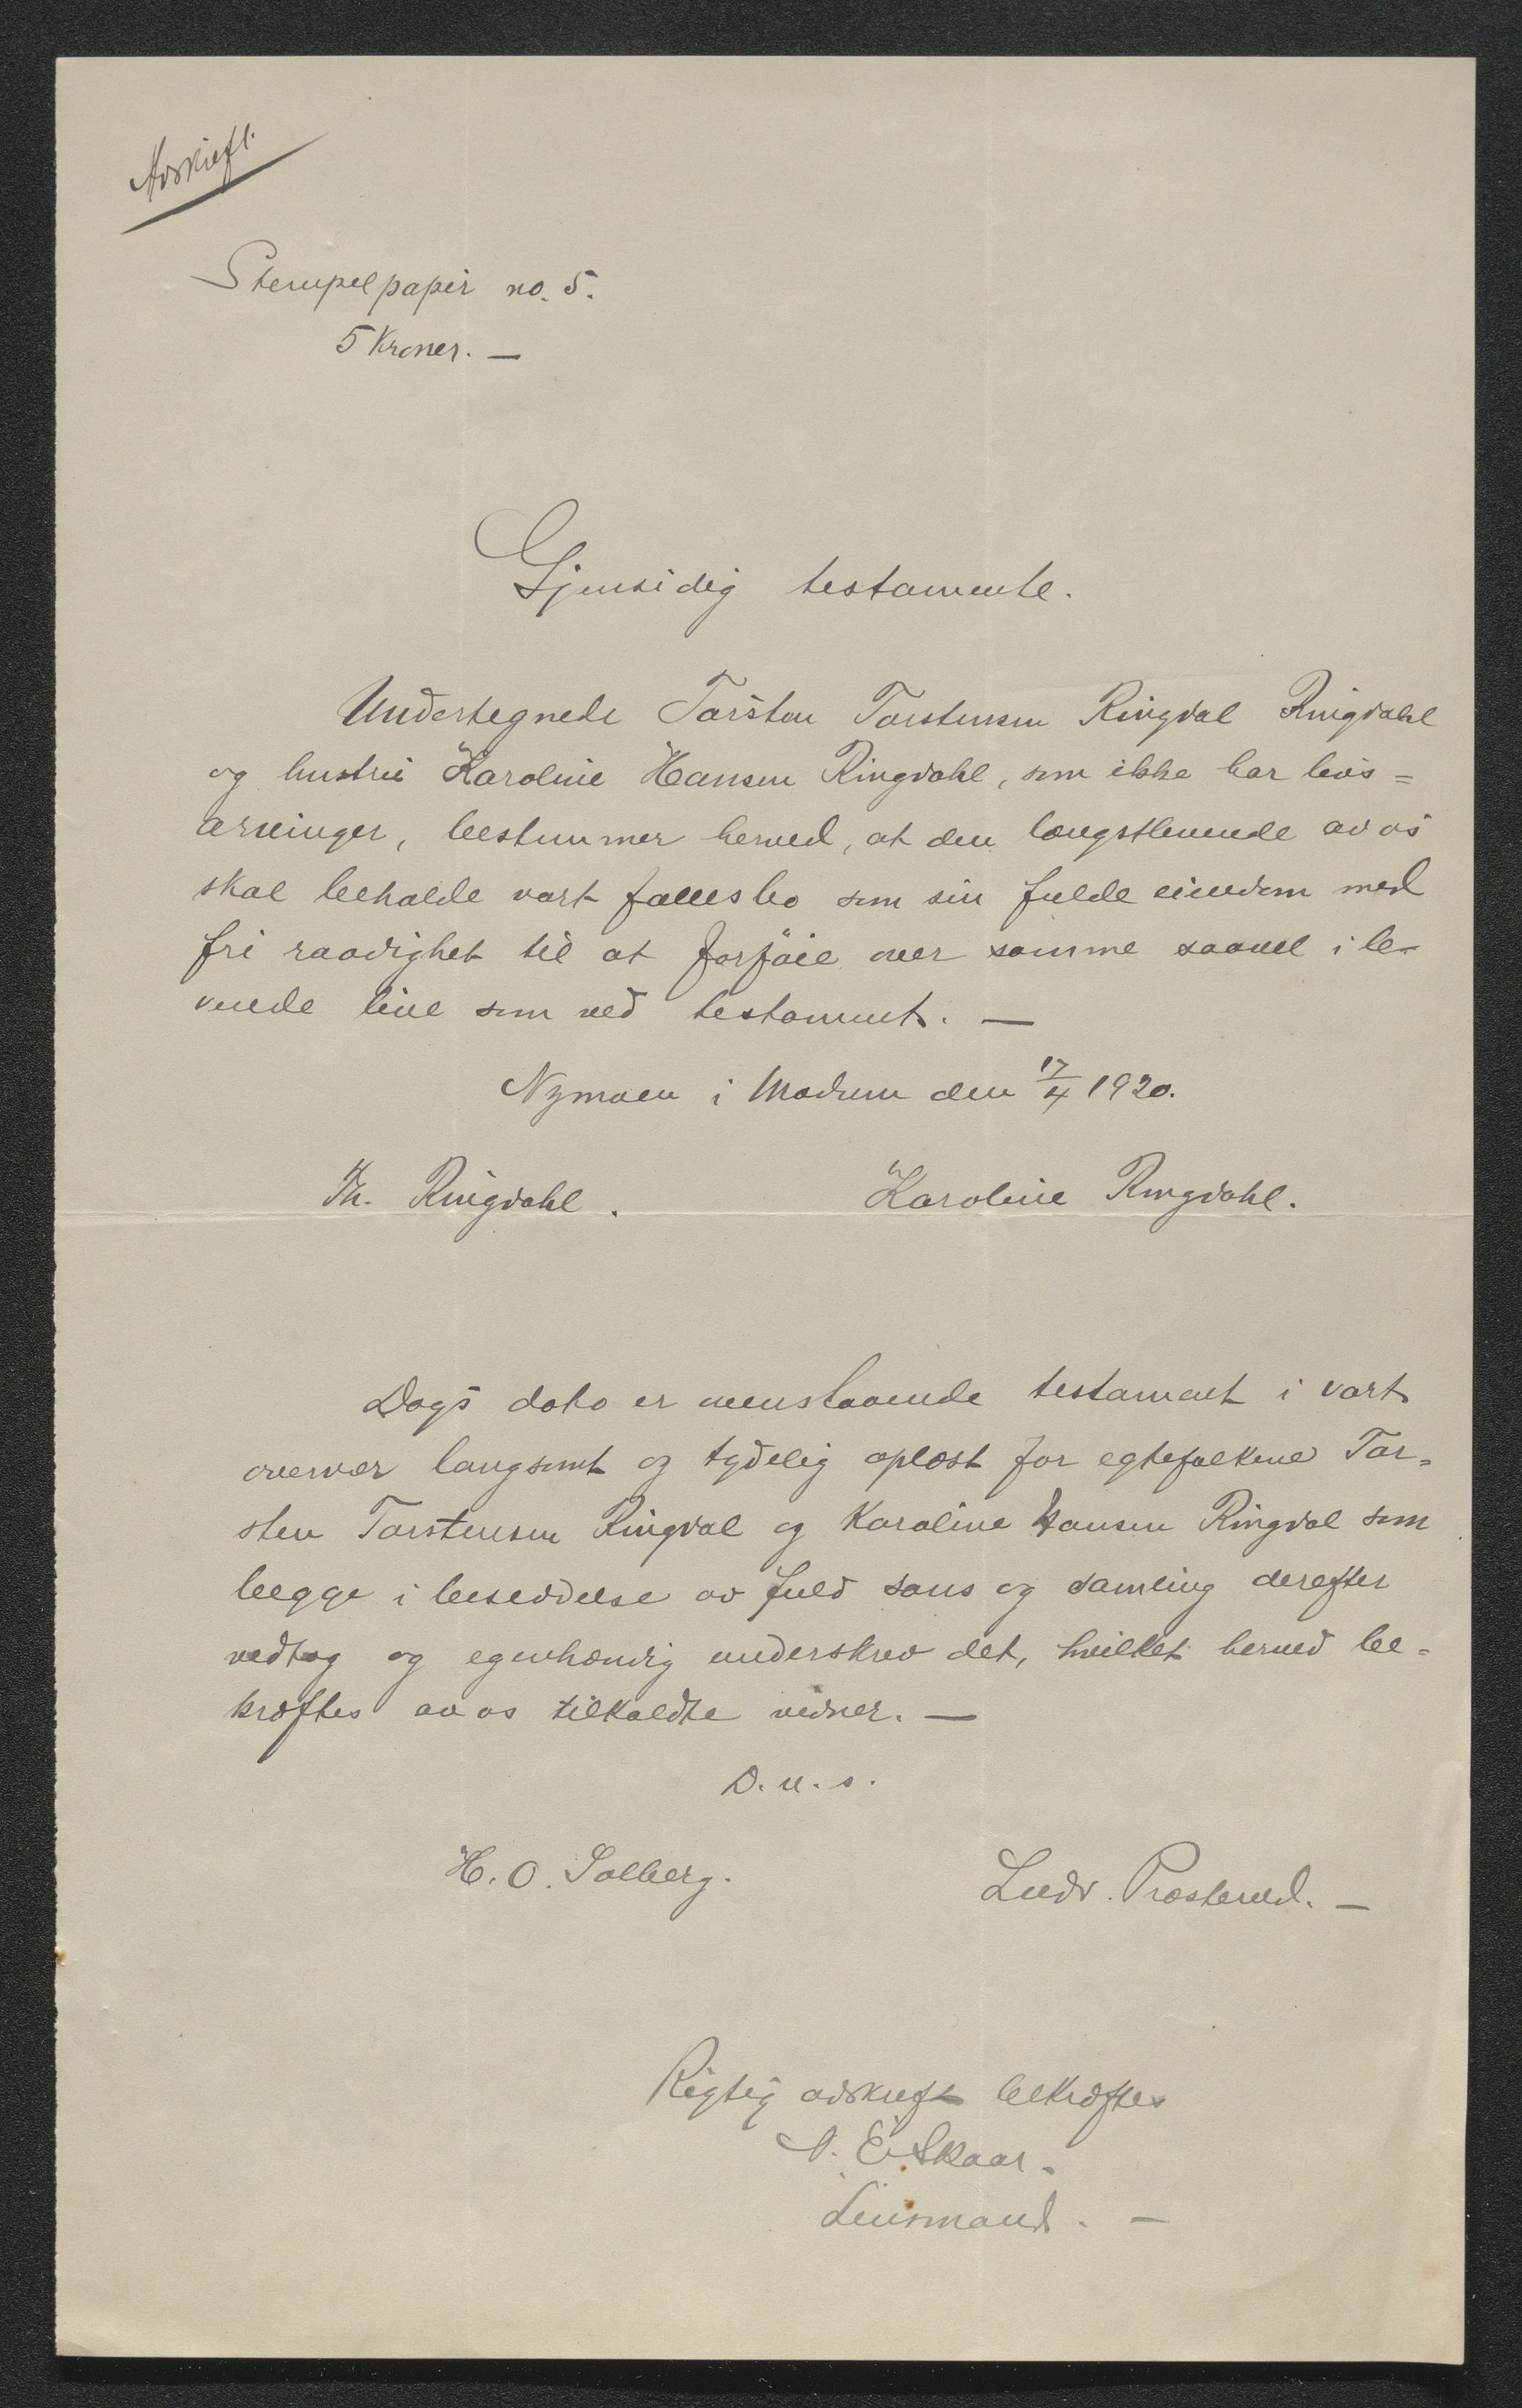 Avskrift.
Stempelpapir no. 5.
5 Kroner. —
Gjensidig testamente.
Undertegnede Torsten Torstensen Ringdal Ringdahl
og hustru Karoline Hansen Ringdahl, som ikke har livs=
arvinger, bestemmer herved, at den længstlevende av os
skal beholde vort fællesbo som sin fulde eiendom med
fri raadighet til at forføie over samme saavel i le-
vende live som ved testament. —
Nymoen i Modum den 17/4 1920.
Th. Ringdahl.
Karoline Ringdahl.
Dags dato er ovenstaaende testament i vort
overvær langsomt og tydelig oplæst for egtefolkene Tor=
sten Torstensen Ringdal og Karoline Hansen Ringdal som
begge i besiddelse av fuld sans og samling derefter
vedtog og egenhændig underskrev det, hvilket herved be=
kræftes av os tilkaldte vidner. —
D. u. s.
H. O. Solberg.
Ludv. Præsterud. —
Rigtig avskrift bekræftes
E. Skaar.
Lensmand. —